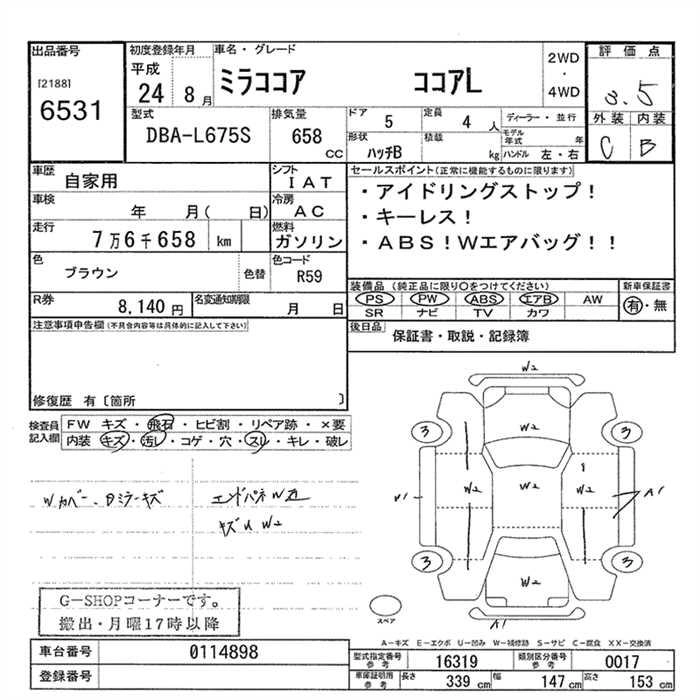 出品番号
[2188]
6531
初度登録年月
平成
24 8 月
車名・グレード
ミラココア ココアL
2WD
・
4WD
評価点
3.5
外装 内装
C B
型式
DBA-L675S
排気量
658
cc
ドア 5
定員 4 人
ディーラー・並行
形状
ハッチB
積載
kg
モデル年式 年
ハンドル 左・右
車歴
自家用
シフト
IAT
車検
年 月( 日)
冷房
AC
走行
7万6千658 km
燃料
ガソリン
色
ブラウン
色替
色コード
R59
R券
8,140 円
名変通知期限
月 日
セールスポイント(正常に機能するものに限ります)
・アイドリングストップ!
・キーレス!
・ABS!Wエアバッグ!!
装備品(純正品に限り○をつけてください)
PS PW ABS エアB AW
SR ナビ TV カワ
新車保証書
有・無
後日品
保証書・取説・記録簿
注意事項申告欄(不具合内容等は具体的に記入して下さい)
修復歴 有〔箇所 〕
検査員
記入欄
FW キズ・飛石・ヒビ割・リペア跡・×要
内装 キズ・汚レ・コゲ・穴・スレ・キレ・破レ
Wカバー、Dミラーキズ
エンドパネW
キズU W2
W2
3 3
W2
W2 W2 W2
A1
3 3
W2
A1
スペア
G-SHOPコーナーです。
搬出・月曜17時以降
A-キズ E-エクボ U-凹み W-補修跡 S-サビ C-腐食 XX-交換済
車台番号
0114898
登録番号
型式指定番号
参考
16319
類別区分番号
参考
0017
車庫証明用
参考
長さ 339 cm
幅 147 cm
高さ 153 cm